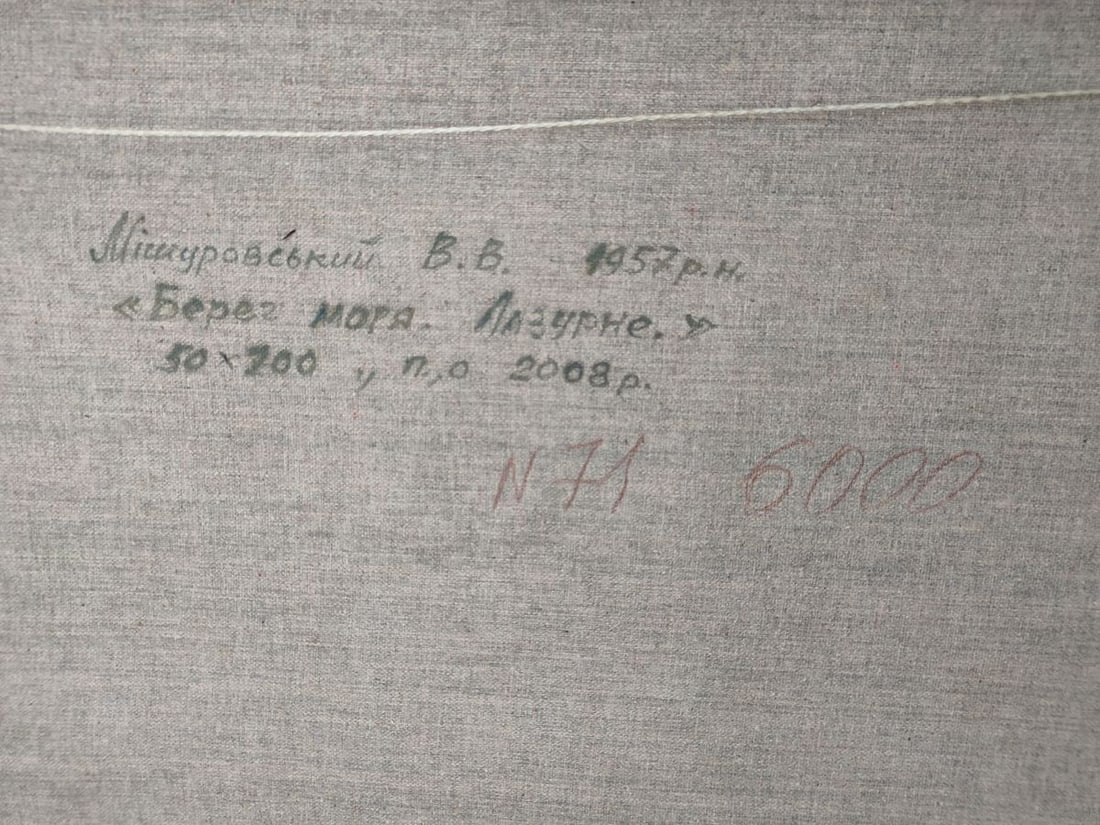 Мішуровський В.В. 1957 р.н.
«Берег моря. Лазурне.»
50×100, п,о 2008 р.
N 71 6000